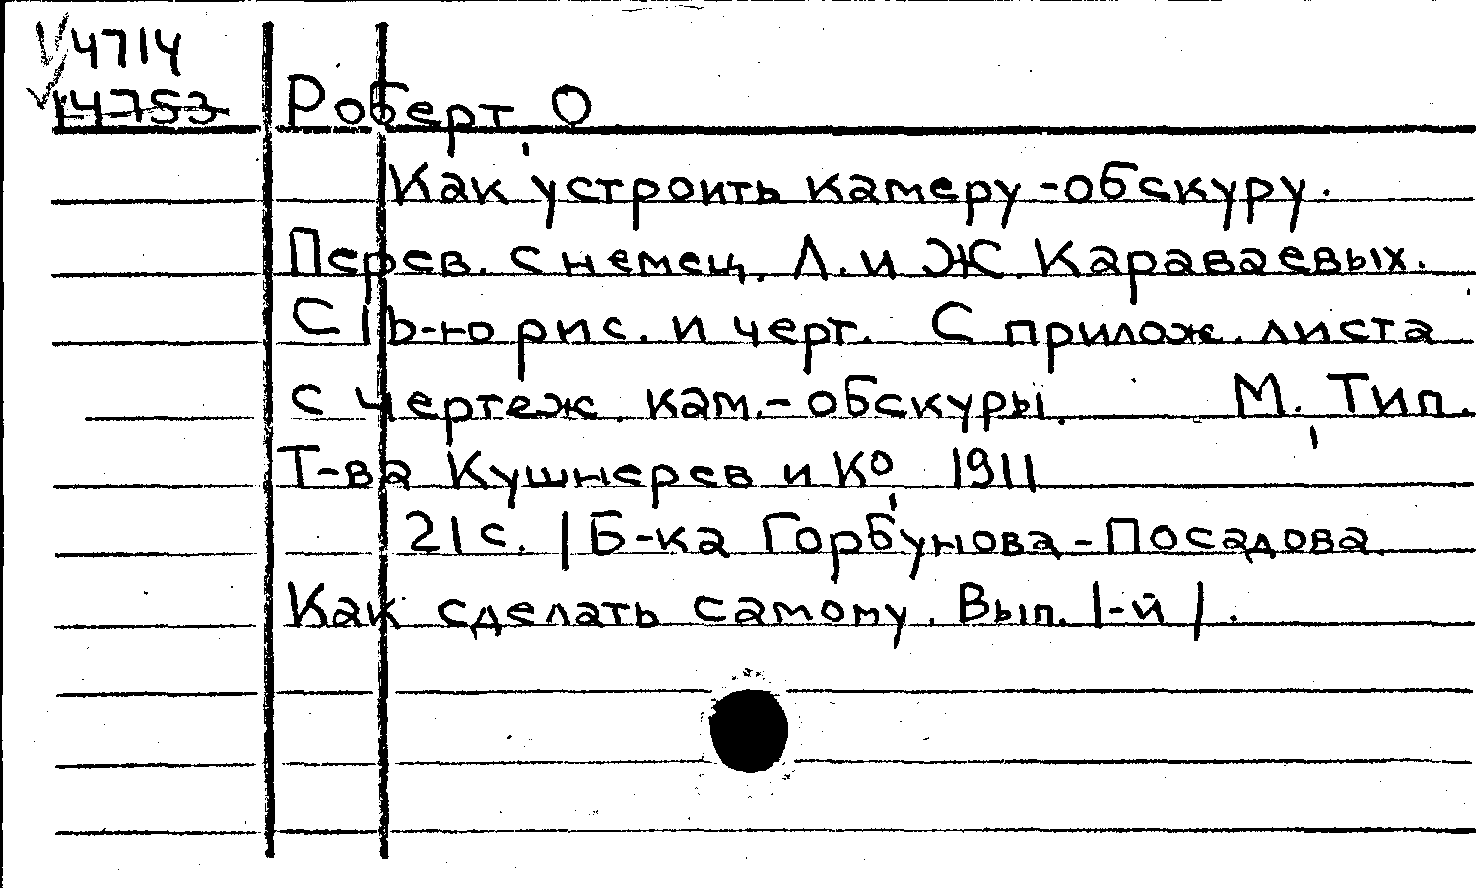 4714
14753 Роберт, О
Как устроить камеру-обскуру.
Перев. с немец. Л. и Ж. Караваевых.
С 16-ю рис. и черт. С прилож. листа
с чертеж. кам.-обскуры. М., Тип.
Т-ва Кушнерев и К⁰, 1911
21 с. | Б-ка Горбунова-Посадова.
Как сделать самому. Вып. 1-й |.